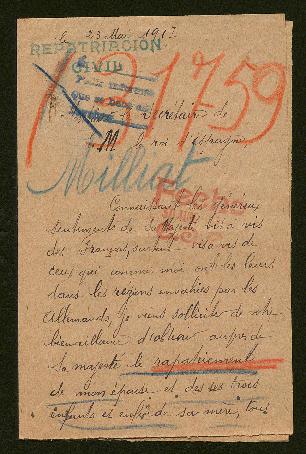 le 23 Mai 1917
REPATRIACION
CIVIL
21759
Secrétaire de
M le roi d'Espagne
Milliat
Connaissant les généreux
sentiments de Sa Majesté vis à vis
des Français, surtout vis à vis de
ceux qui comme moi ont les leurs
dans les régions envahies par les
Allemands, je viens solliciter de votre
bienveillance d'obtenir auprès de
Sa majesté le rapatriement
de mon épouse et des ses trois
enfants et enfin de sa mère, tous